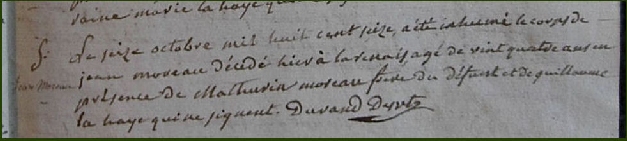 marie la haye qui
S. Le seize octobre mil huit cent seize, a été inhumé le corps de
Jean Moreau
jean moreau décédé hier à la renais agé de vint quatre ans en
présence de Mathurin moreau frere du défunt et de guillaume
la haye qui ne signent. Durand Desrte